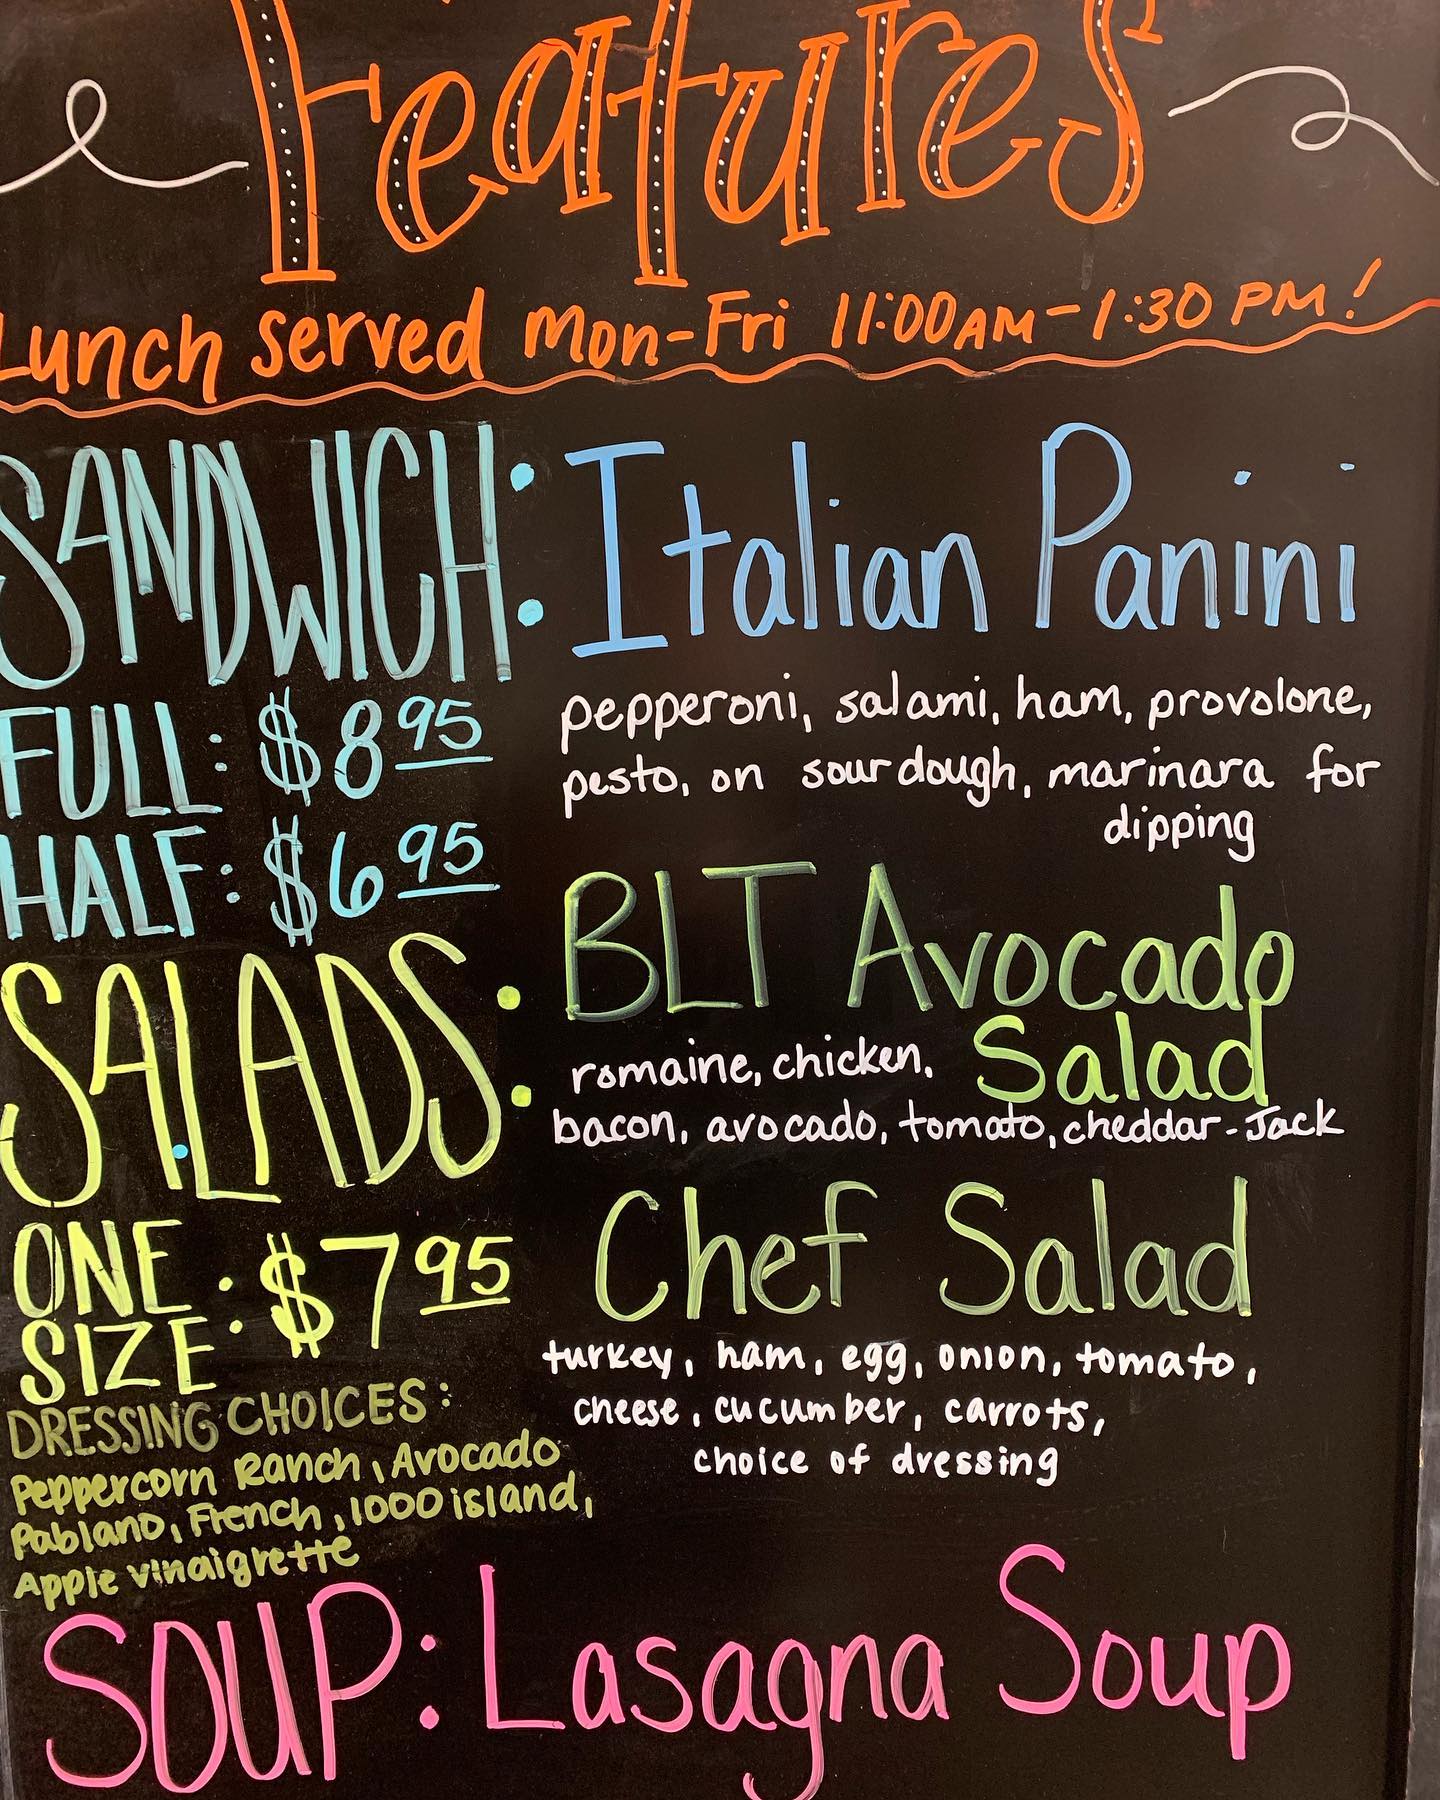 Features
Lunch served Mon-Fri 11:00AM-1:30 PM!
SANDWICH:
FULL: $8.95
HALF: $6.95
Italian Panini
pepperoni, salami, ham, provolone,
pesto, on sour dough, marinara for
dipping
SALADS:
ONE
SIZE: $7.95
BLT Avocado
Salad
romaine, chicken,
bacon, avocado, tomato, cheddar-Jack
Chef Salad
turkey, ham, egg, onion, tomato,
cheese, cucumber, carrots,
choice of dressing
DRESSING CHOICES:
Peppercorn Ranch, Avocado
Pablano, French, 1000 island,
Apple vinaigrette
SOUP: Lasagna Soup